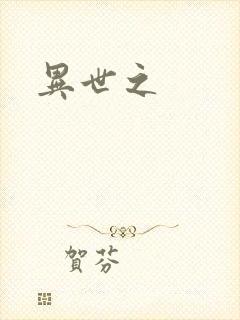 異世之
賀芬